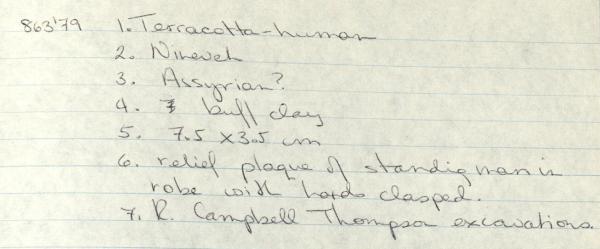 863'79 1. Terracotta-human
2. Nineveh
3. Assyrian?
4. buff clay
5. 7.5 x 3.5 cm
6. relief plaque of standing man in
robe with hands clasped.
7. R. Campbell Thompson excavations.